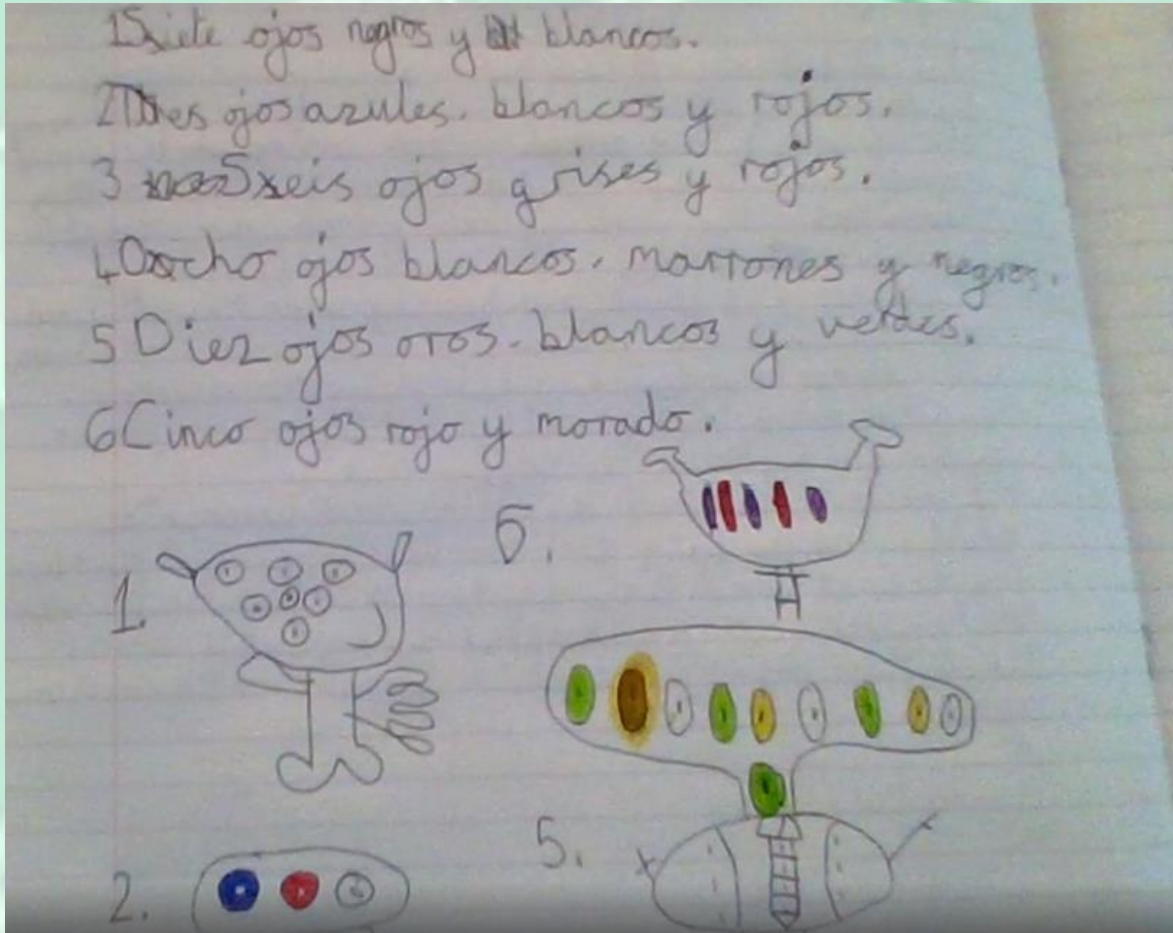 1Siete ojos negros y blancos.
2Tres ojos azules, blancos y rojos.
3 Seis ojos grises y rojos.
4Ocho ojos blancos, marrones y negros.
5 Diez ojos oros, blancos y verdes.
6Cinco ojos rojo y morado.
6.
1.
5.
2.